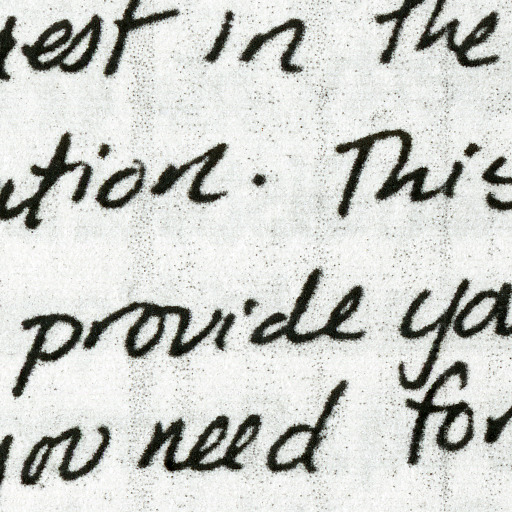 est in the
ution. This
provide yo
you need for